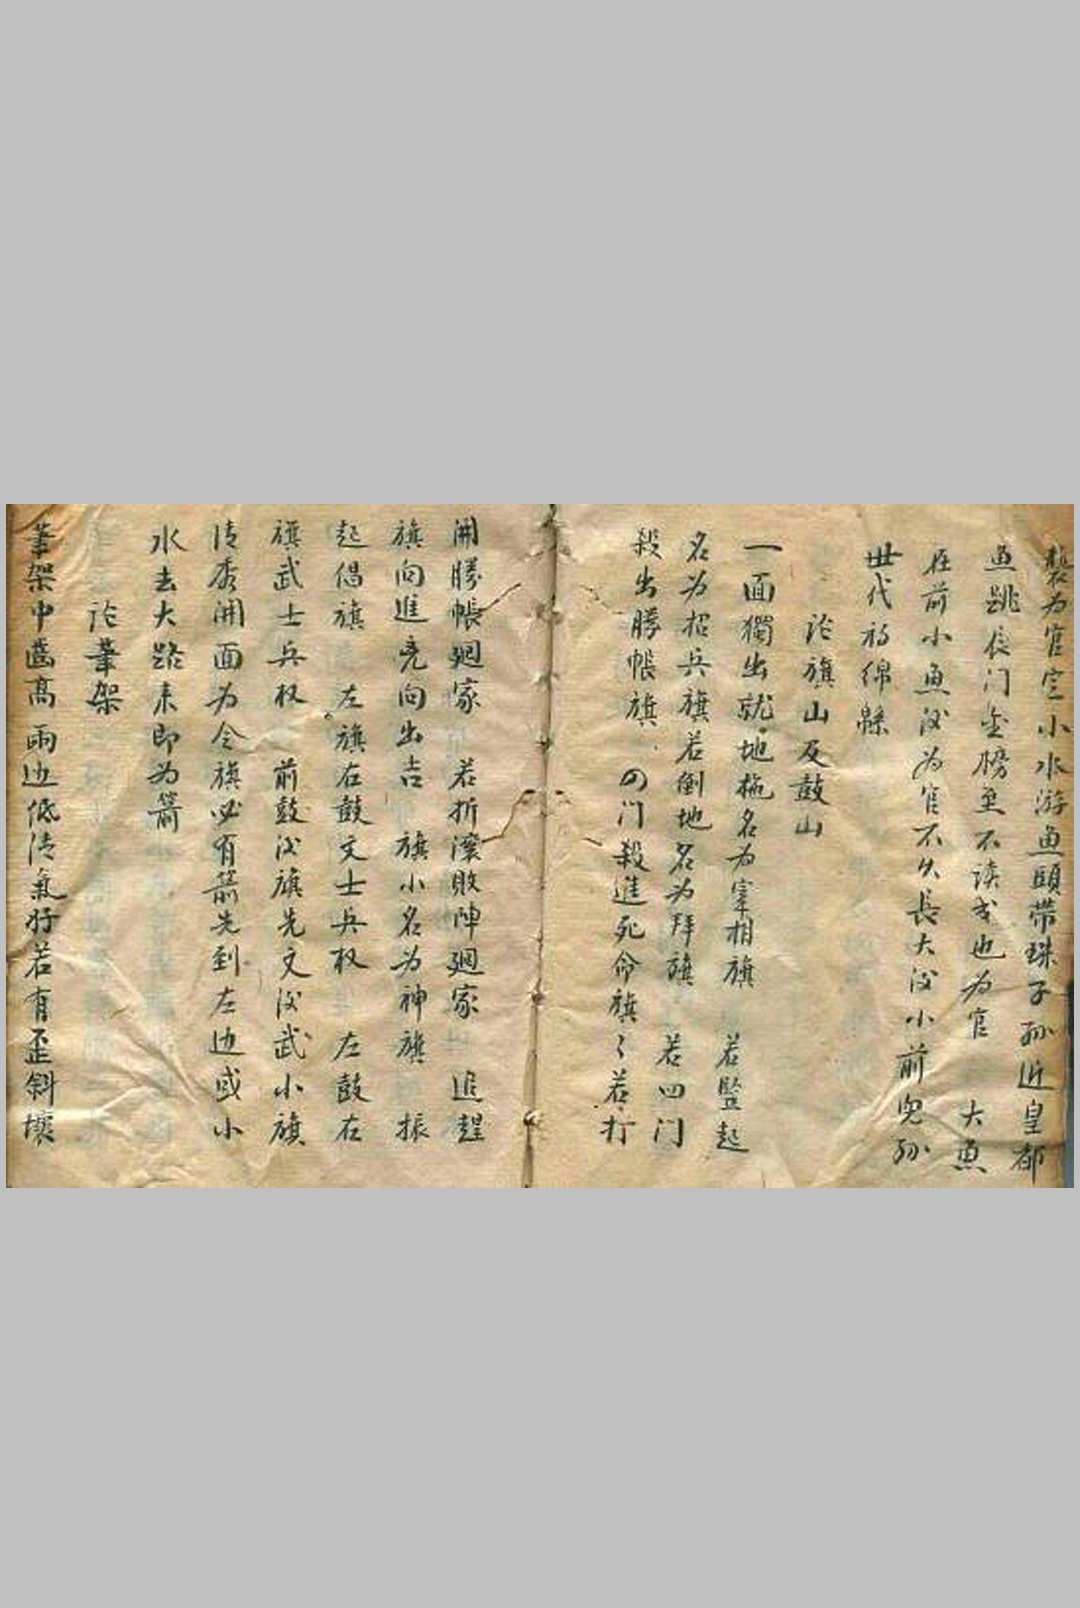 襲为官定小水游魚頤带珠子孙近皇都
魚跳 门金榜 不读 也为官 大魚
在前小魚後为官不久長大後小前児孙
世代 綿綿
论旗山及鼓山
一面獨出就地拖名为宰相旗 若監起
名为招兵旗若倒地名为拜旗 若四门
殺出勝帳旗 四门殺進死命旗〻若打
開勝帳廻家 若折滾敗陣廻家 進趕
旗向進 向出吉 旗小名为神旗 振
起倡旗 左旗右鼓文士兵权 左鼓右
旗武士兵权 前鼓後旗先文後武小旗
清秀開面为令旗必有箭先到左边或小
水去大路来即为箭
论筆架
筆架中齒高兩边低清氣好若有歪斜壞